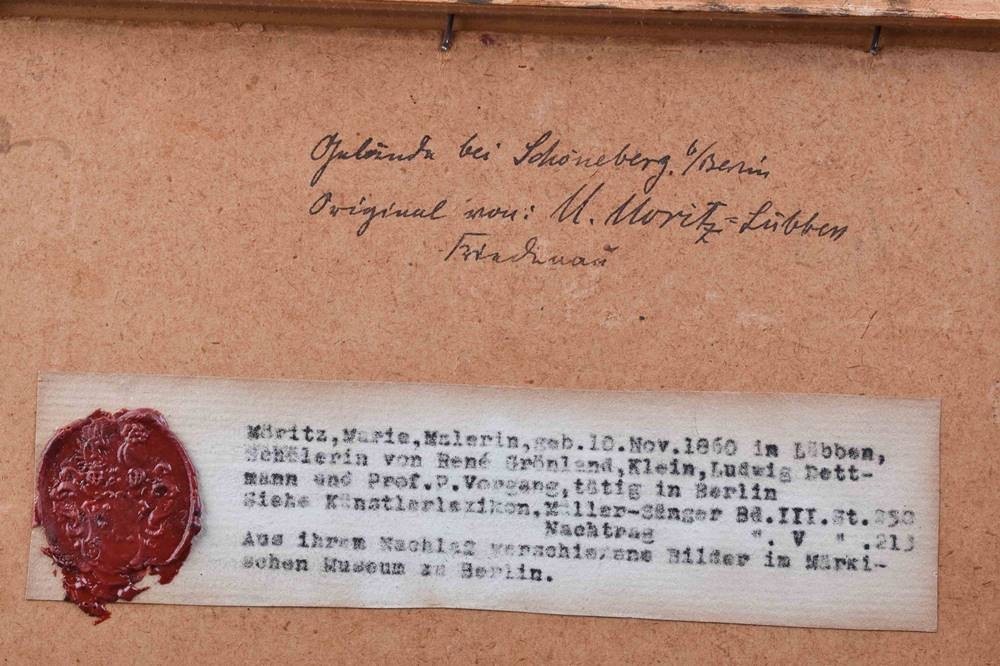 Gelände bei Schöneberg. b/Berlin
Original von: M. Moritz=Lübben
Friedenau
Möritz,Marie,Malerin,geb.10.Nov.1860 in Lübben,
Schülerin von René Grönland,Klein,Ludwig Dett-
mann und Prof.P.Vorgang,tätig in Berlin
Siehe Künstlerlexikon,Müller-Singer Bd.III.St.250
Nachtrag ". V " .213
Aus ihrem Nachlaß verschiedene Bilder im Märki-
schen Museum zu Berlin.